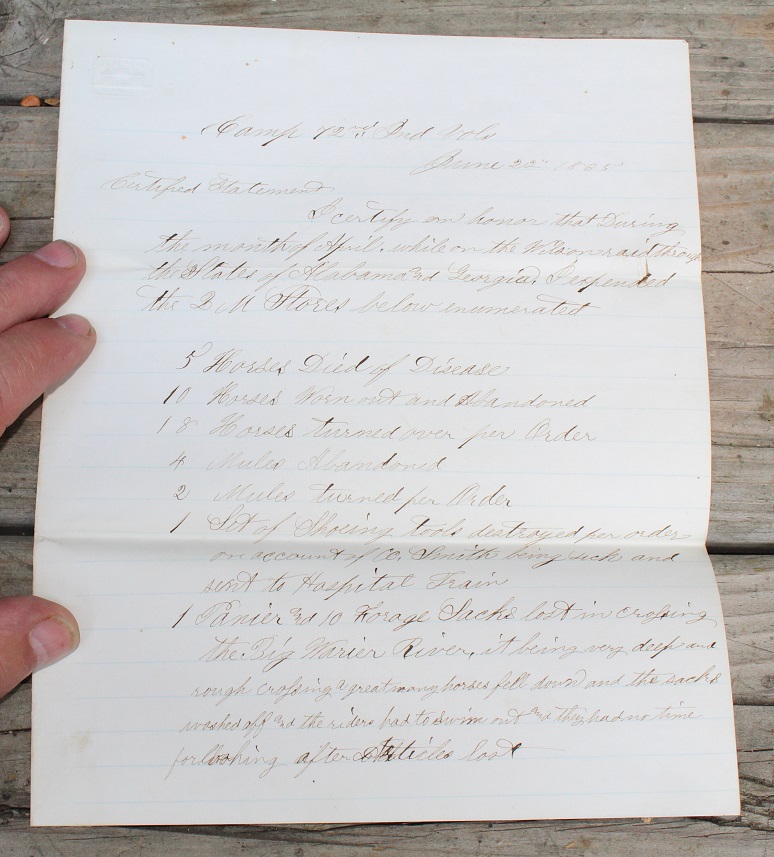 Camp 72nd Ind Vols
June 22" 1865
Certified Statement
I certify on honor that During
the month of April. while on the Wilson raid through
the States of Alabama and Georgia. I expended
the Q M Stores below enumerated
5 Horses Died of Disease
10 Horses Worn out and Abandoned
18 Horses turned over per Order
4 Mules Abandoned
2 Mules turned per Order
1 Set of Shoeing tools destroyed per order
on account of Co. Smith being sick and
sent to Hospital Train
1 Panier and 10 Forage Sacks lost in crossing
the Big Warier River, it being very deep and
rough crossing a great many horses fell down and the sacks
washed off and the riders had to swim out and they had no time
for looking after Articles lost